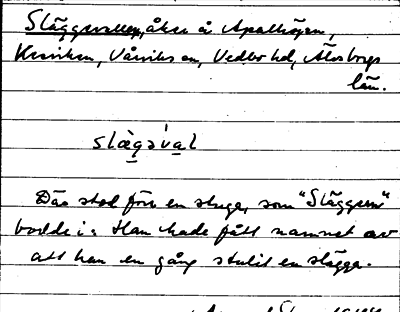 Släggsvallen, åker å Apalhögen,
Kraviken, Vårviks sn, Vedbo hd, Älvsborgs
län.
slägsval
Där stod förr en stuga, som "Släggsen"
bodde i. Han hade fått namnet av
att han en gång stulit en slägga.